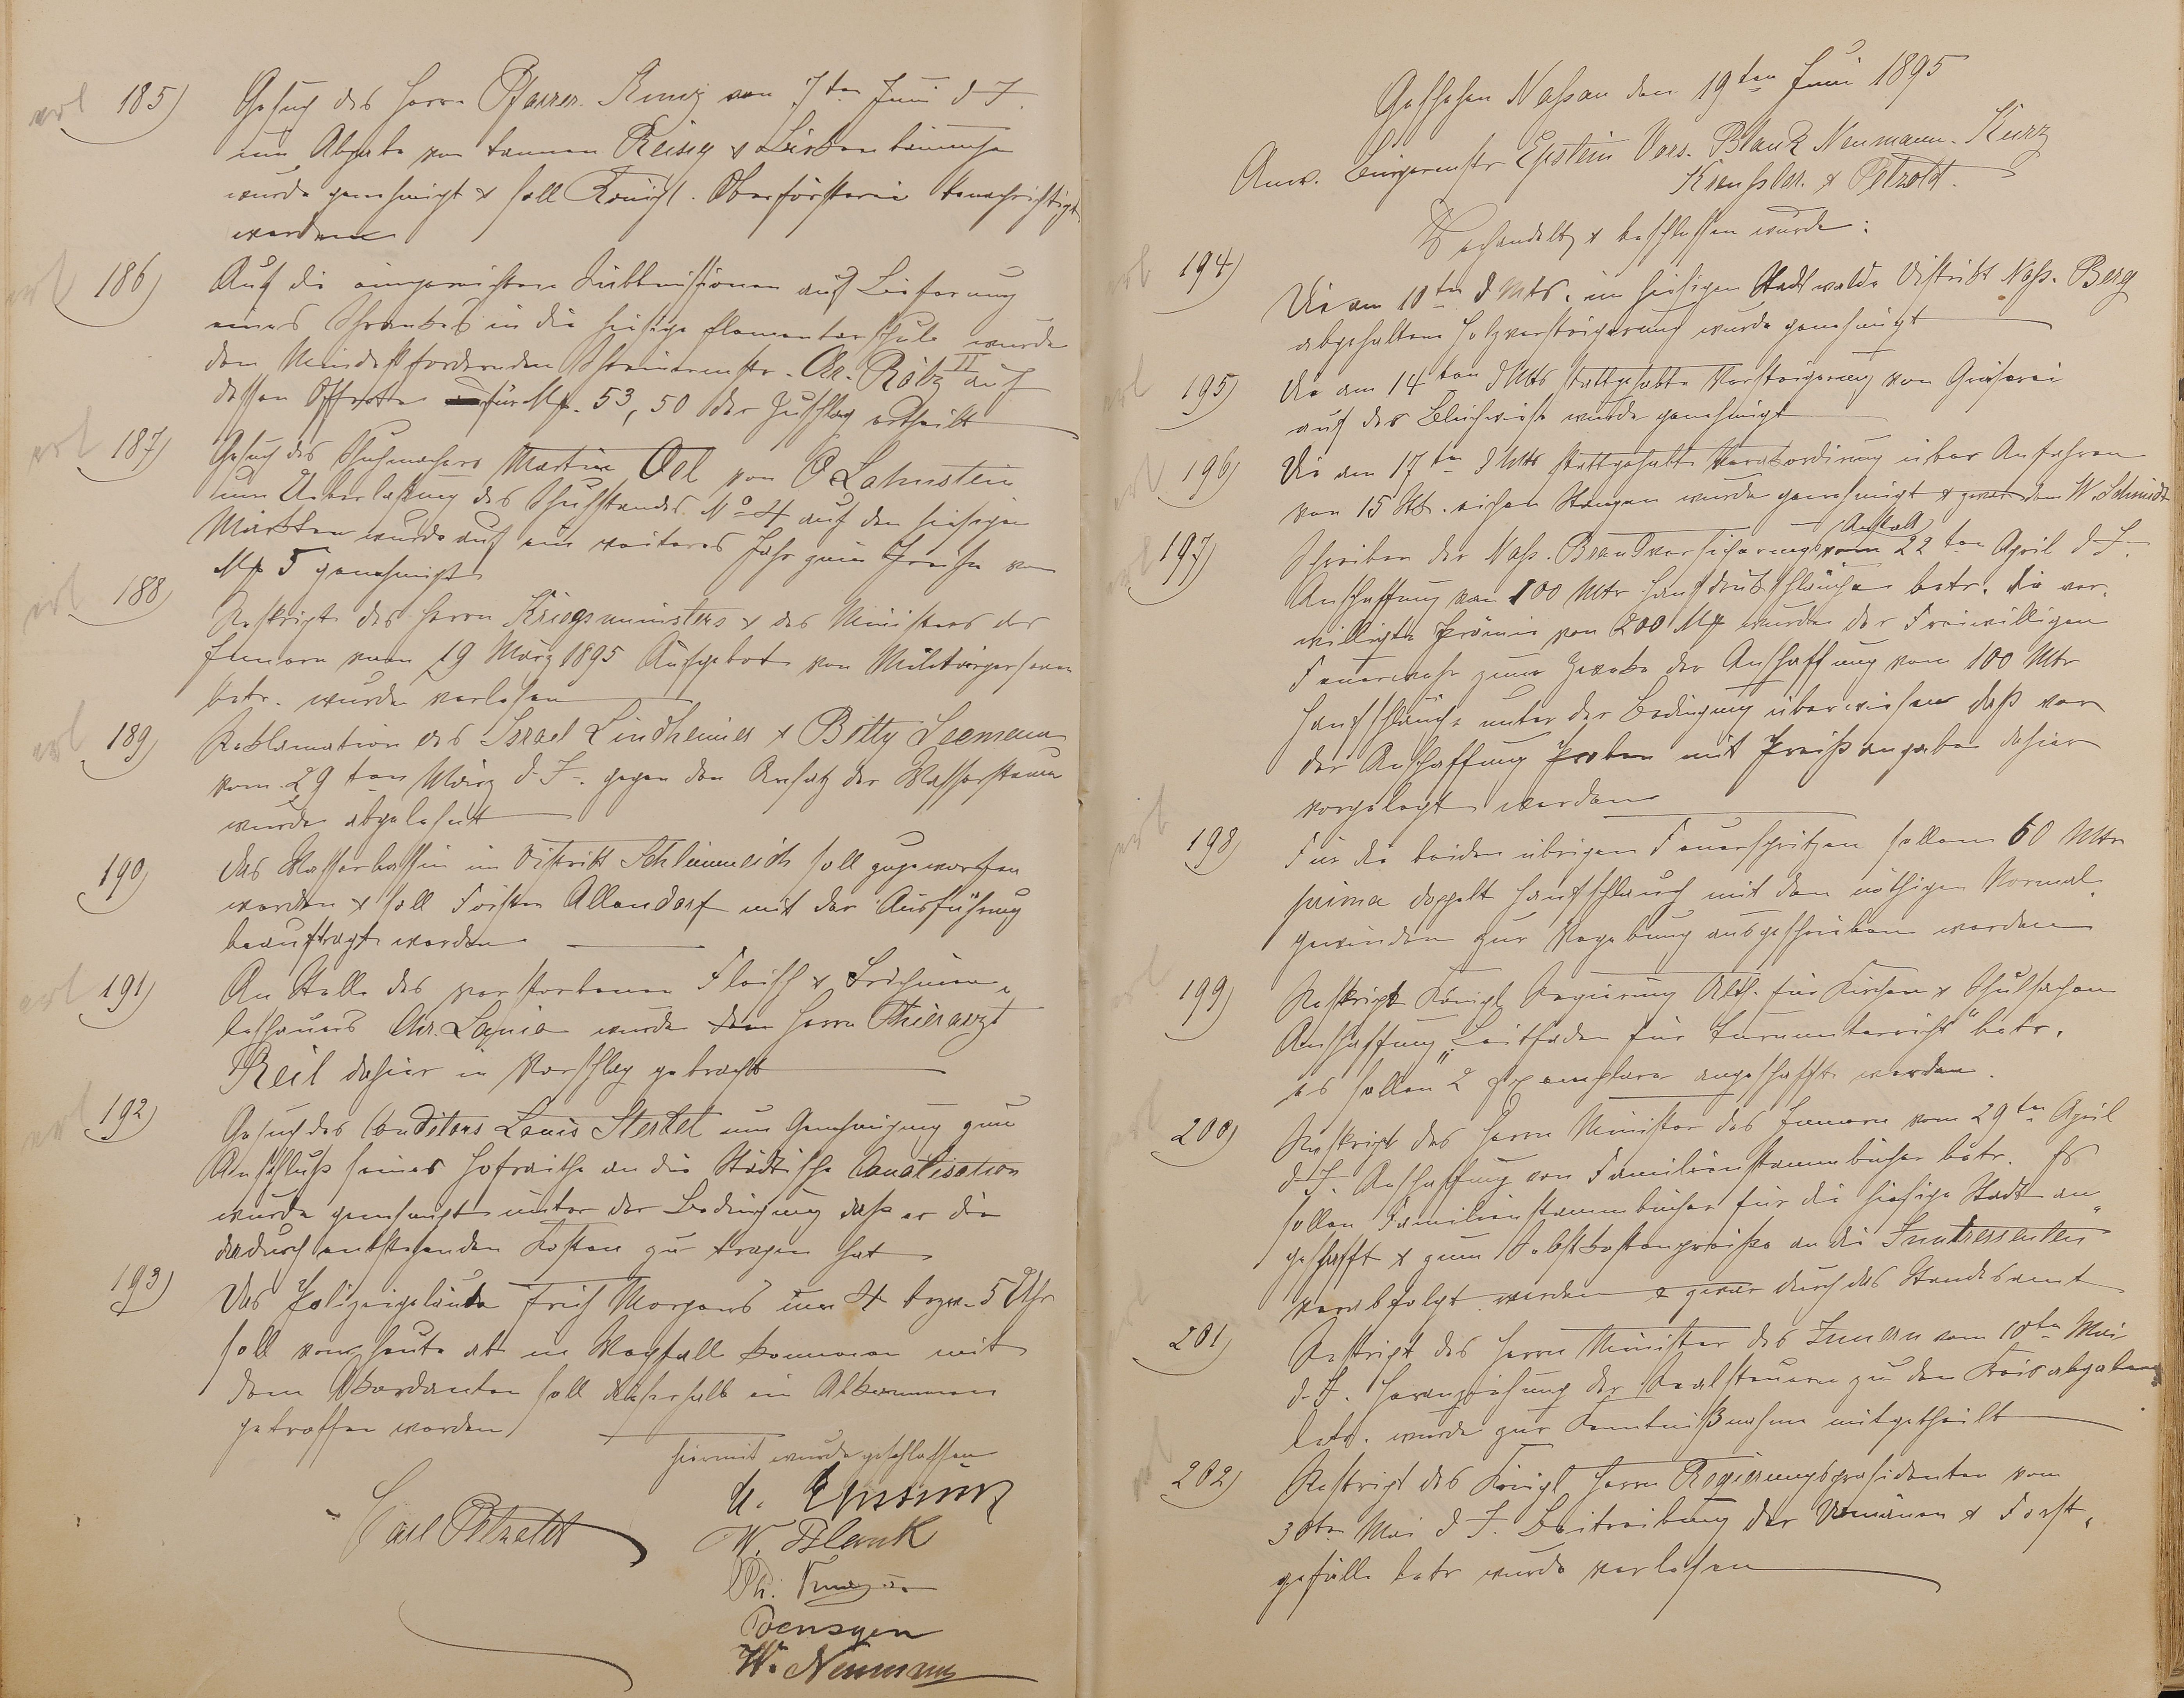 erl 185) Gesuch des Herrn Pfarrer Kunz vom 7ten Juni d. J.
um Abgabe von tannen Reisig & Birkenbäumche
wurde genehmigt & soll Königl. Oberförsterei benachrichtigt
werden
erl 186) Auf die eingereichten Submissionen auf Lieferung
eines Schrankes in die hiesige Elementarschule wurde
dem Mindestfordernden Schreinermstr. Chr. Rölz II auf
dessen Offerte für Mk. 53,50 der Zuschlag ertheilt
erl 187) Gesuch des Schuhmachers Martin Oel von O Lahnstein
um Ueberlassung des Schuhstandes No 4 auf den hiesigen
Märkten wurde auf ein weiteres Jahr zum Preise von
Mk 5 genehmigt
erl 188) Reskript des Herrn Kriegsministers & des Ministers des
Innern vom 19 März 1895 Aufgebote von Militärpersonen
betr. wurde verlesen
erl 189) Reklamation des Israel Lindheimer & Betty Seemann
vom 29ten März d. J. gegen den Ansatz der Wassersteuer
wurde abgelehnt
190) Das Wasserbassin im Distrikt Schlimmelich soll zugeworfen
werden & soll Förster Allendorf mit der Ausführung
beauftragt werden
erl 191) An Stelle des verstorbenen Fleisch & Trichinen„
beschauers Chr. Lanio wurde dem Herrn Thierarzt
Reil dahier in Vorschlag gebracht
erl 192) Gesuch des Conditors Louis Sterkel um Genehmigung zum
Anschluß seines Hofraithe an die Städtische Canalisation
wurde genehmigt unter der Bedingung daß er die
dadurch entstehenden Kosten zu tragen hat
193) Das Polizeigeläute früh Morgens um 4 bezw. 5 Uhr
soll von heute ab in Wegfall kommen mit
dem Akkordanten soll dieserhalb ein Abkommen
getroffen werden
Hiermit wurde geschlossen
Carl Petzoldt
Epstein
W. Blank
Ph.
Poensgen
W. Neumann
Geschehen Nassau den 19ten Juni 1895
Anw. Bürgermstr Epstein Vors. Blank Neumann. Kurz
& Petzoldt.
Behandelt & beschlossen wurde:
erl 194) Die am 10ten d Mts. im hiesigen Stadtwalde Distrikt Nass. Berg
abgehaltene Holzversteigerung wurde genehmigt
erl 195) Die am 14ten d Mts stattgehabte Versteigerung von Gräserei
auf der Bleichwiese wurde genehmigt
erl 196) Die am 17ten d Mts stattgehabte Verakkordirung über Anfahren
von 15 Stk. eichen Stangen wurde genehmigt & zwar dem W. Schmidt
erl 197) Schreiben der Nass. Brandversicherungs Anstalt vom 22ten April d. J.
Anschaffung von 100 Mtr Hanfdruckschläuche betr. die ver„
willigte Prämie von 200 Mk wurde der Freiwilligen
Feuerwehr zum Zwecke der Anschaffung von 100 Mtr
Hanfschläuche unter der Bedingung überwiesen daß vor
der Anschaffung Proben mit Preißangaben dahier
vorgelegt werden
erl 198) Für die beiden übrigen Feuerspritzen sollen 60 Mtr
prima doppelt Hanfschlauch mit dem nöthigen Normal„
gewinden zur Vergebung ausgeschrieben werden
erl 199) Reskript Königl Regierung Abth. für Kirchen & Schulsachen
Anschaffung „Leitfaden für Turnunterricht“ betr.
es sollen 2 Exemplare angeschafft werden.
erl 200) Reskript des Herrn Minister des Innern vom 29ten April
d. J. Anschaffung von Familienstammbücher betr. Es
sollen Familienstammbücher für die hiesige Stadt an„
geschafft & zum Selbstkostenpreise an die Interessenten
verabfolgt werden & zwar durch das Standesamt
erl 201) Reskript des Herrn Minister des Innern vom 10ten Mai
d. J. Heranziehung der Realsteuern zu den Kreisabgaben
betr. wurde zur Kenntnißnahme mitgetheilt
erl 202) Reskript des Königl Herrn Regierungspräsidenten vom
30ten Mai d J. Beitreibung der Domänen & Forst„
gefälle betr wurde verlesen